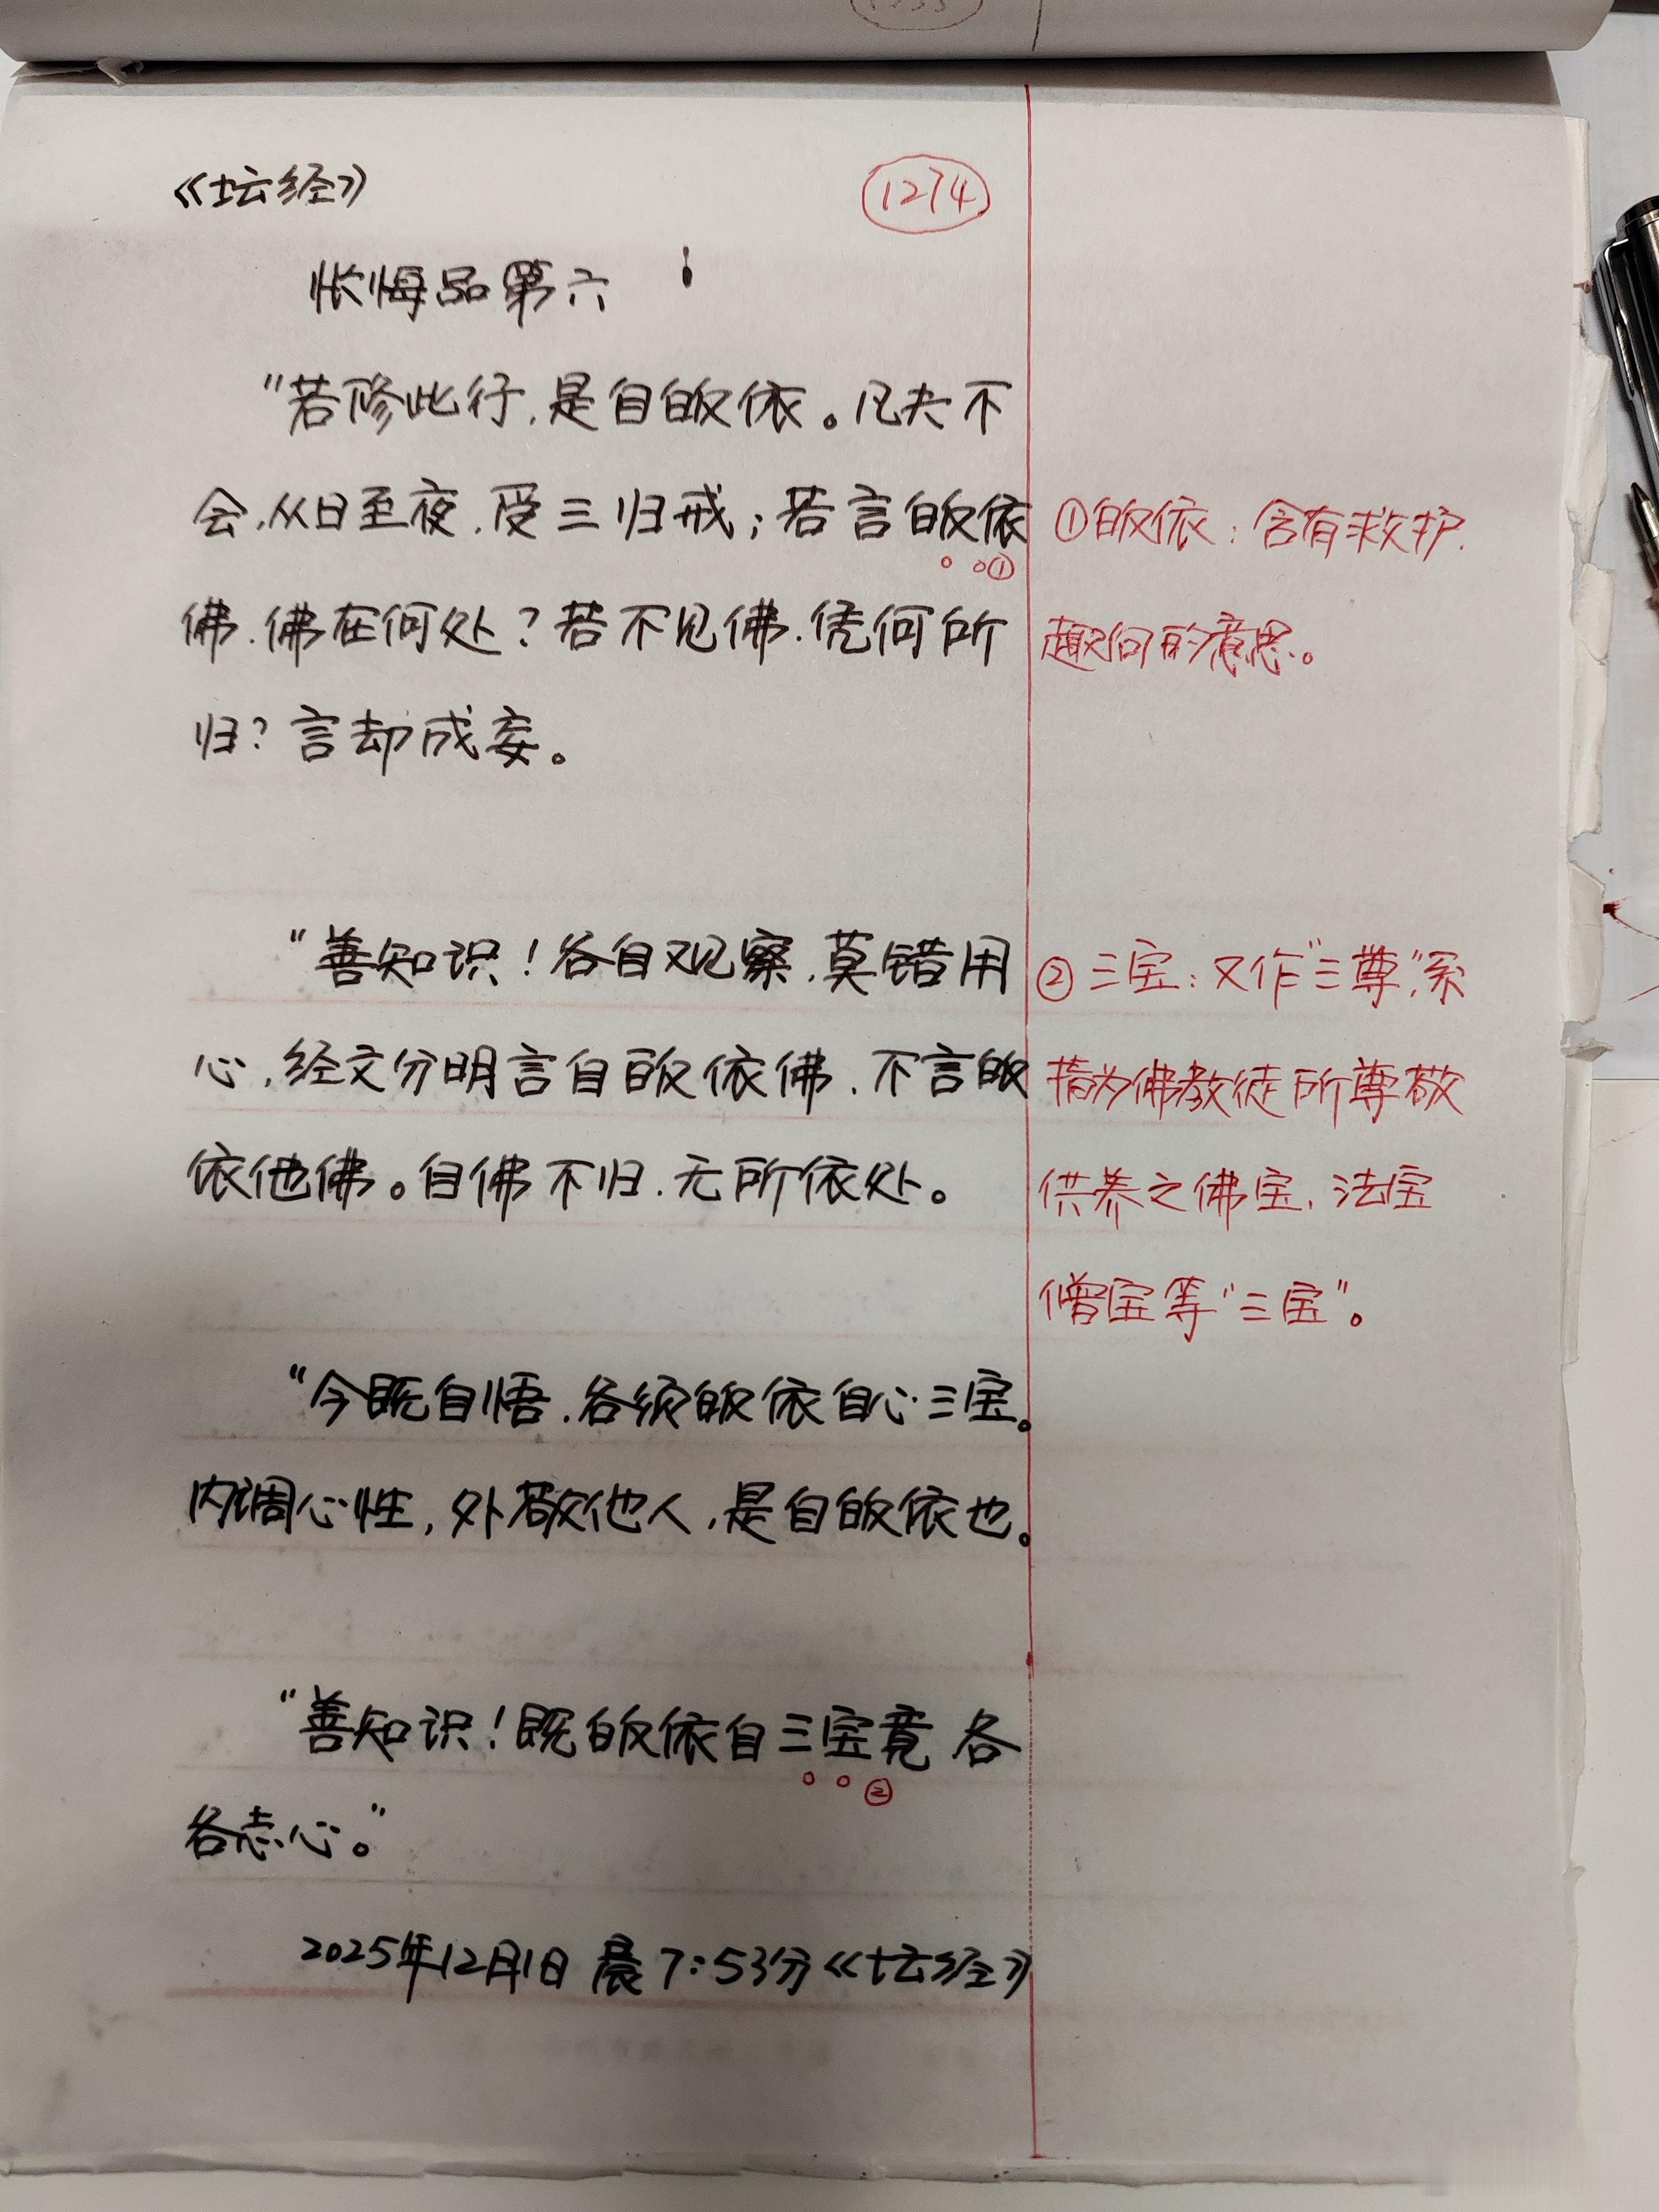 《坛经》
1274
忏悔品第六
“若修此行,是自皈依。凡夫不
会,从日至夜,受三归戒;若言皈依
①皈依:含有救护.
佛.佛在何处?若不见佛.凭何所
趣向的意思。
归?言却成妄。
“善知识!各自观察,莫错用
②三宝:又作“三尊”,系
心,经文分明言自皈依佛,不言皈
指为佛教徒所尊敬
依他佛。自佛不归.无所依处。
供养之佛宝,法宝
僧宝等“三宝”。
“今既自悟.各须皈依自心三宝。
内调心性,外敬他人,是自皈依也。
“善知识!既皈依自三宝竟各
②
各志心。”
2025年12月1日 晨7:53分《坛经》